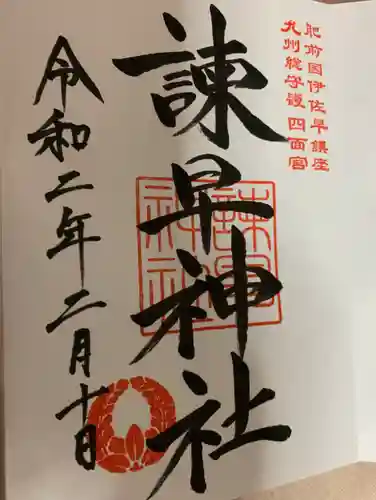 肥前国伊佐早鎮座
九州総守護 四面宮
諫早神社
諫早神社
令和二年二月十一日